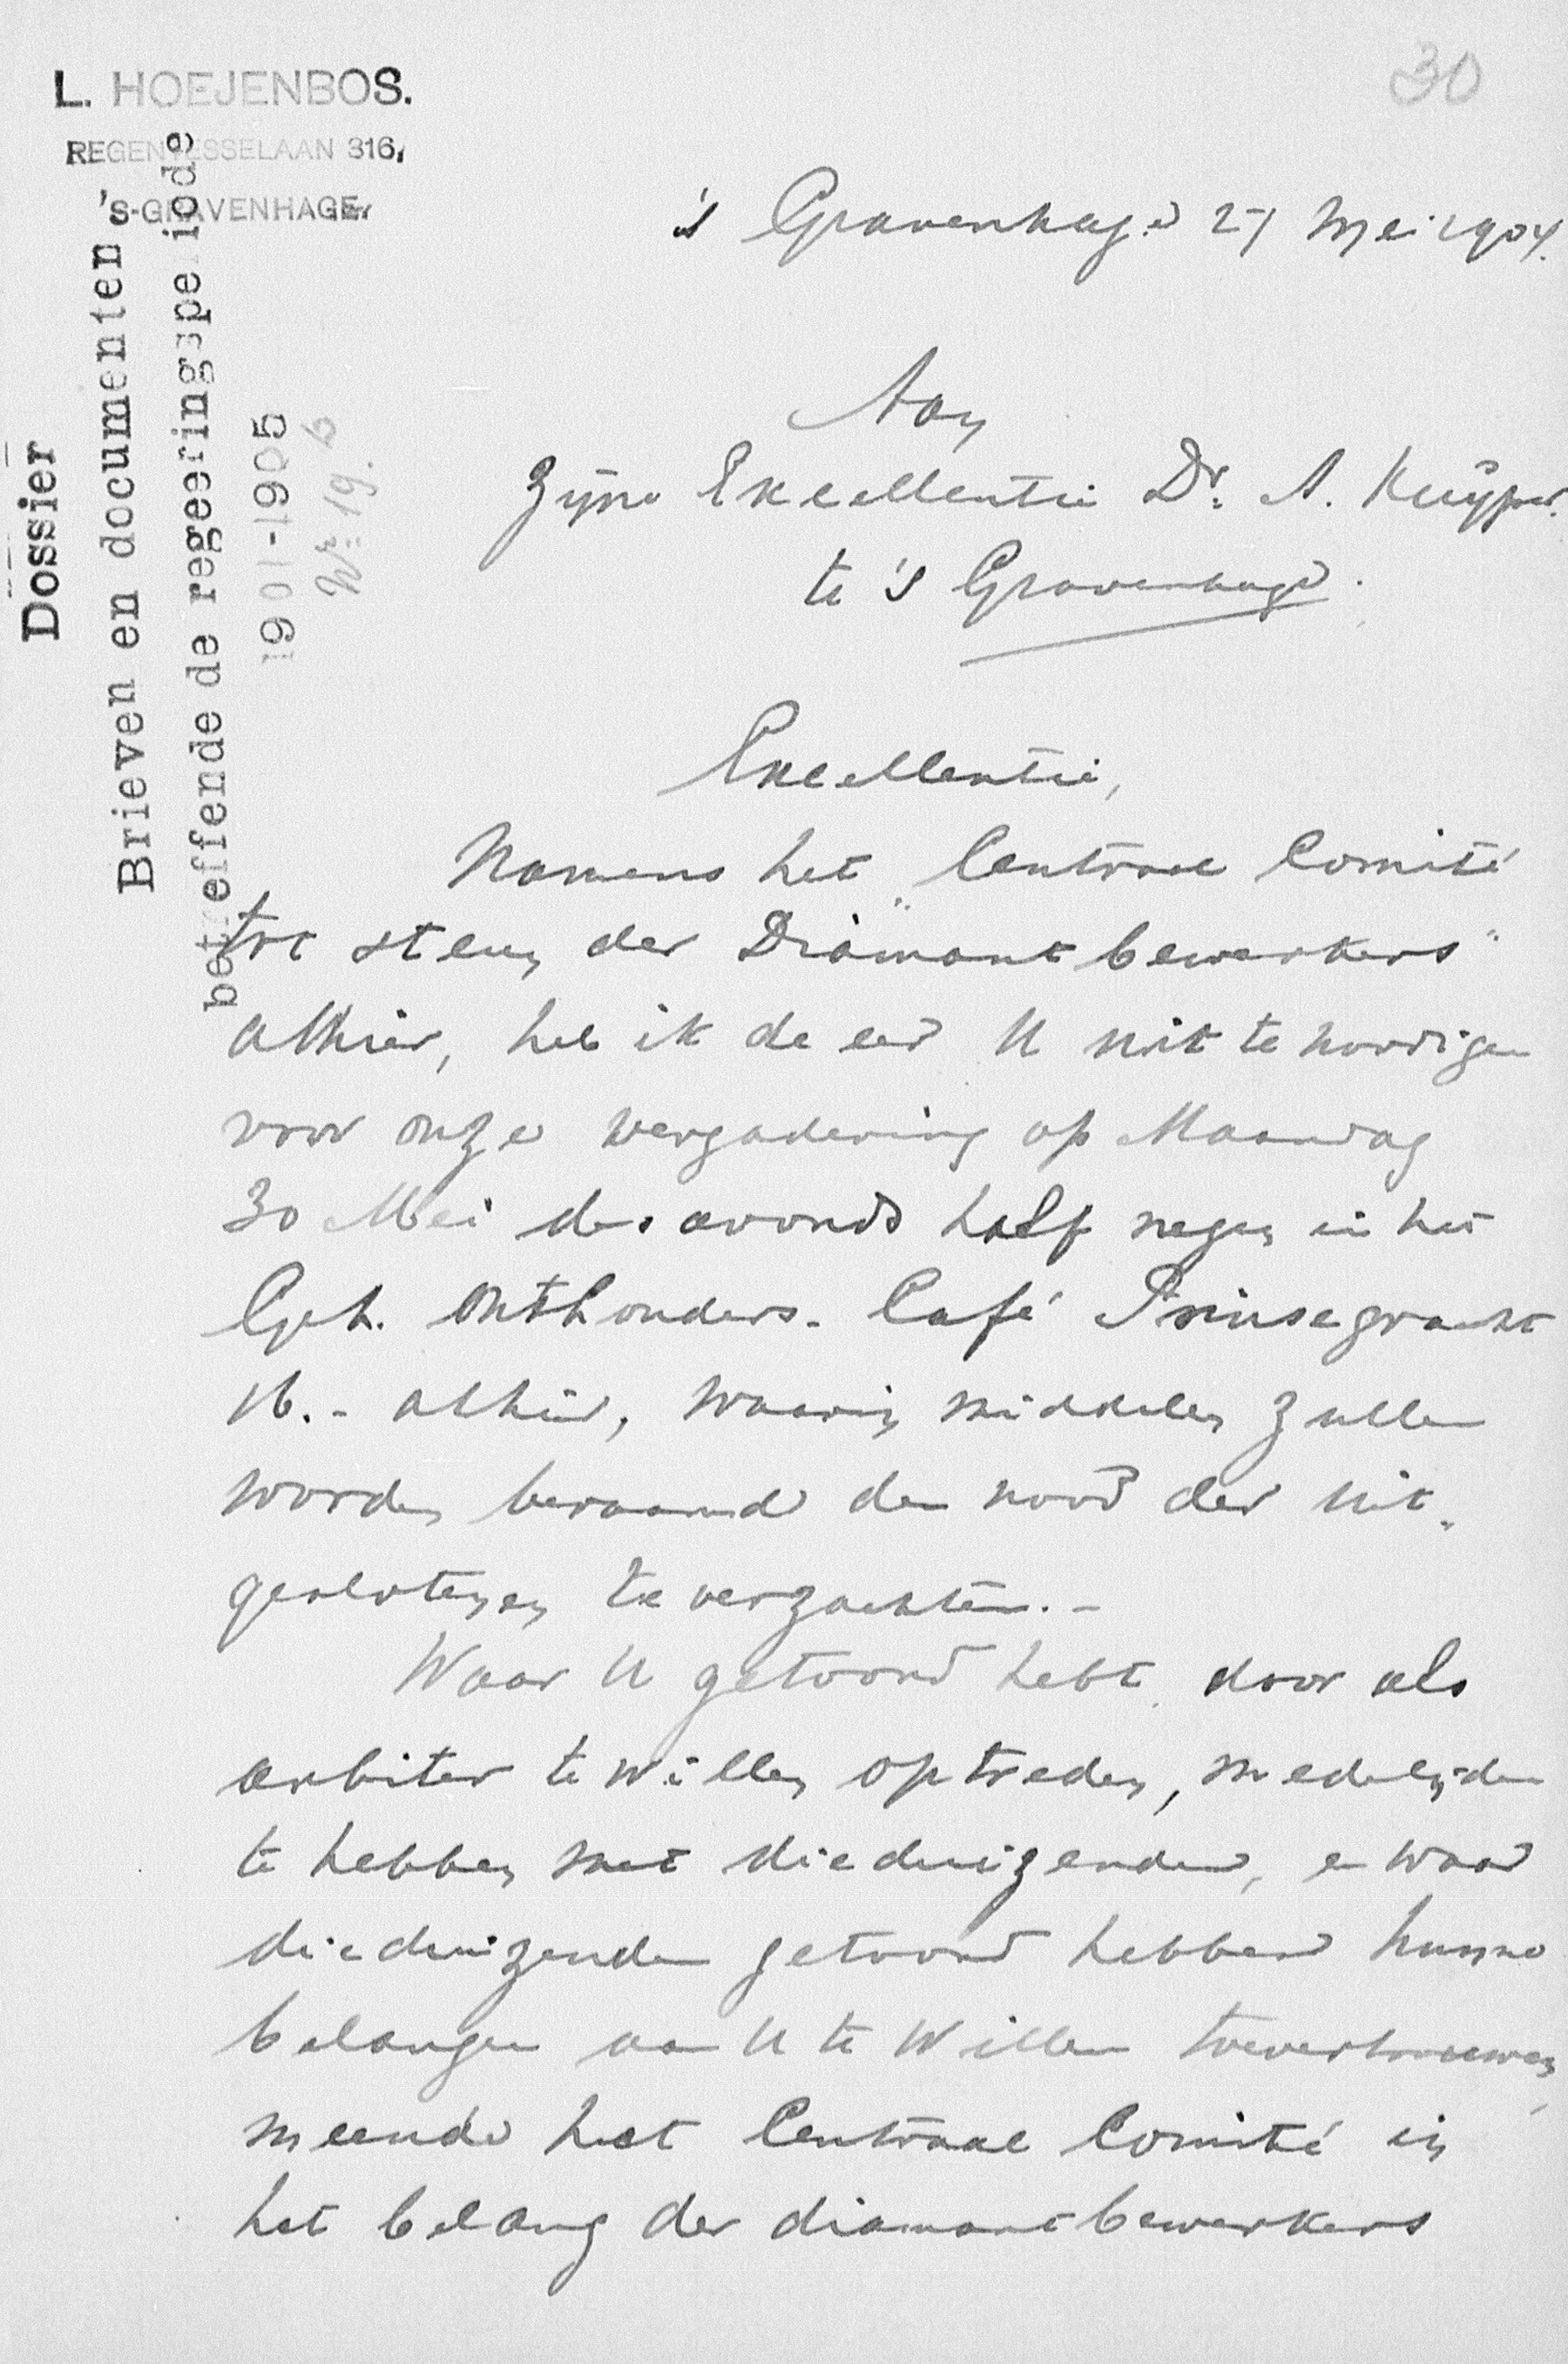 30
L. HOEJENBOS.
REGENTESSELAAN 316,
'S-GRAVENHAGE.
Dossier
Brieven en documenten
betreffende de regeeringsperiode
1901-1905
No. 19. b
's Gravenhage 27 Mei 1904.
Aan
Zijne Excellentie Dr. A. Kuijper.
te 's Gravenhage.
Excellentie,
Namens het Centraal Comité
"tot steun der Diamantbewerkers"
alhier, heb ik de eer U uit te noodigen
voor onze vergadering op Maandag
30 Mei des avonds half negen in het
Geh. onthouders-Café Prinsegracht
16.- alhier, waarin middelen zullen
worden beraamd den nood der uit-
geslotenen te verzachten.-
Waar U getoond hebt door als
arbiter te willen optreden, medelijden
te hebben met die duizenden, en waar
die duizenden getoond hebben hunne
belangen aan U te willen toevertrouwen,
meende het Centraal Comité in
het belang der diamantbewerkers